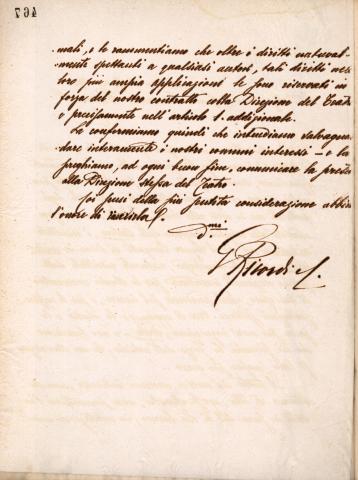 467
mali, e le rammentiamo che oltre i diritti natural-
mente spettanti a qualsiasi autore, tali diritti nel
loro più ampia applicazioni le sono riservati in
forza del nostro contratto colla Direzione del Teatro
e precisamente nell'articolo 1. addizionale.
Le confermiamo quindi che intendiamo salvaguar-
dare interamente i nostri comuni interessi - e la
preghiamo, ad ogni buon fine, comunicare la presente
alla Direzione stessa del Teatro.
Coi sensi della più perfetta considerazione abbiamo
l'onore di
d.mi
G Ricordi C.